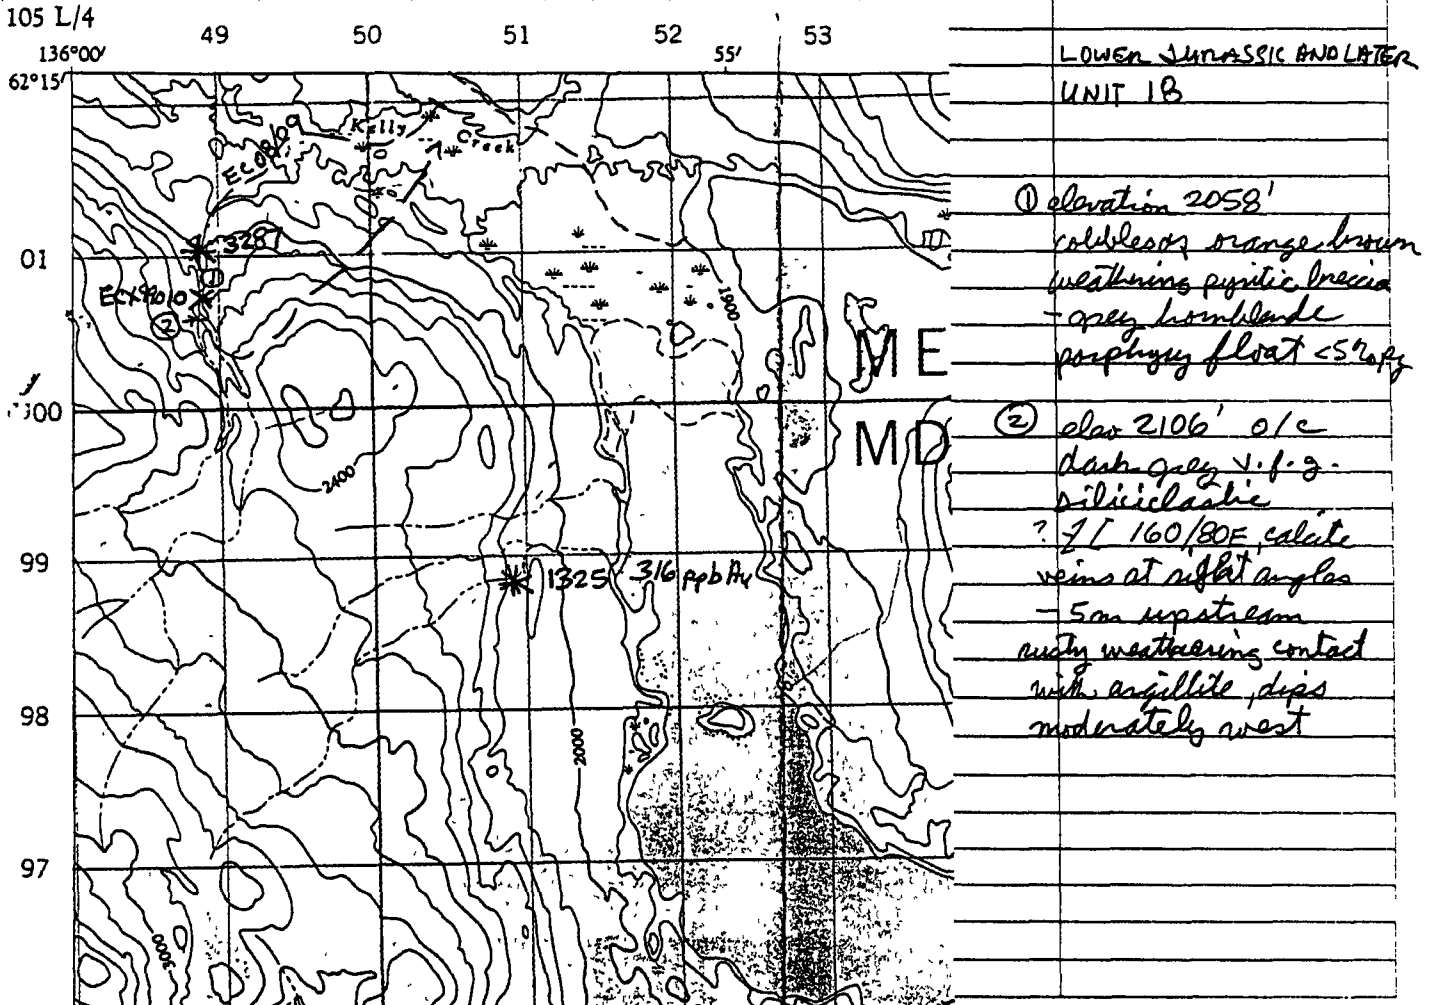 105 L/4
49 50 51 52 53
136°00′ 55′
62°15′
Kelly
Creek
EC08/09
3287
01
①
②
1900
ME
00
MD
2400
99
1325 316 ppb Au
98
2000
97
3000
LOWER JURASSIC AND LATER
UNIT 1B
① elevation 2058'
cobbles of orange-brown
weathering pyritic breccia
- grey hornblende
porphyry float <5% py
② elev 2106' o/c
dark grey v.f.g.
siliciclastic
? 160/80E, calcite
veins at right angles
- 5m upstream
rusty weathering contact
with argillite, dips
moderately west